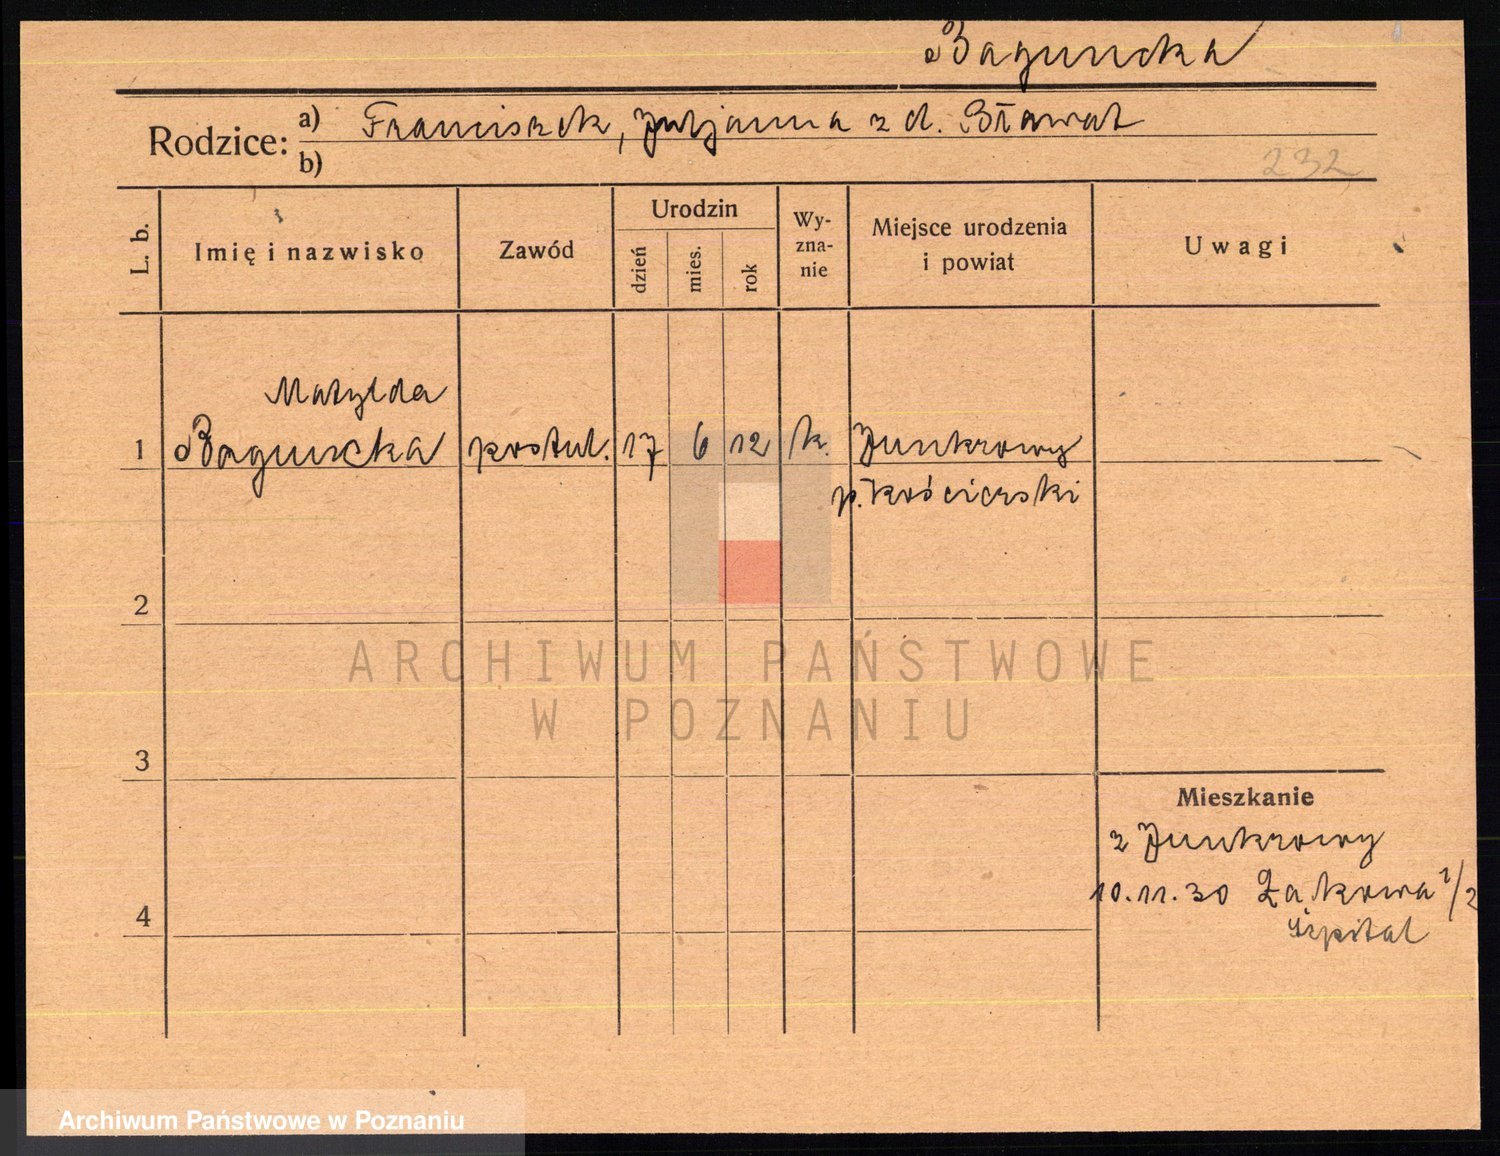 Baguncka
Rodzice: a) Franciszek, Juljanna z d. Bławat
b)
232
L. b.
Imię i nazwisko
Zawód
Urodzin
dzień
mies.
rok
Wy-
zna-
nie
Miejsce urodzenia
i powiat
Uwagi
Matylda
1 Baguncka postul. 17 6 12 k. Junkrowy
p. kościerski
2
3
4
Mieszkanie
z Junkrowy
10.11.30 Łąkowa 1/2
szpital
ARCHIWUM PAŃSTWOWE
W POZNANIU
Archiwum Państwowe w Poznaniu